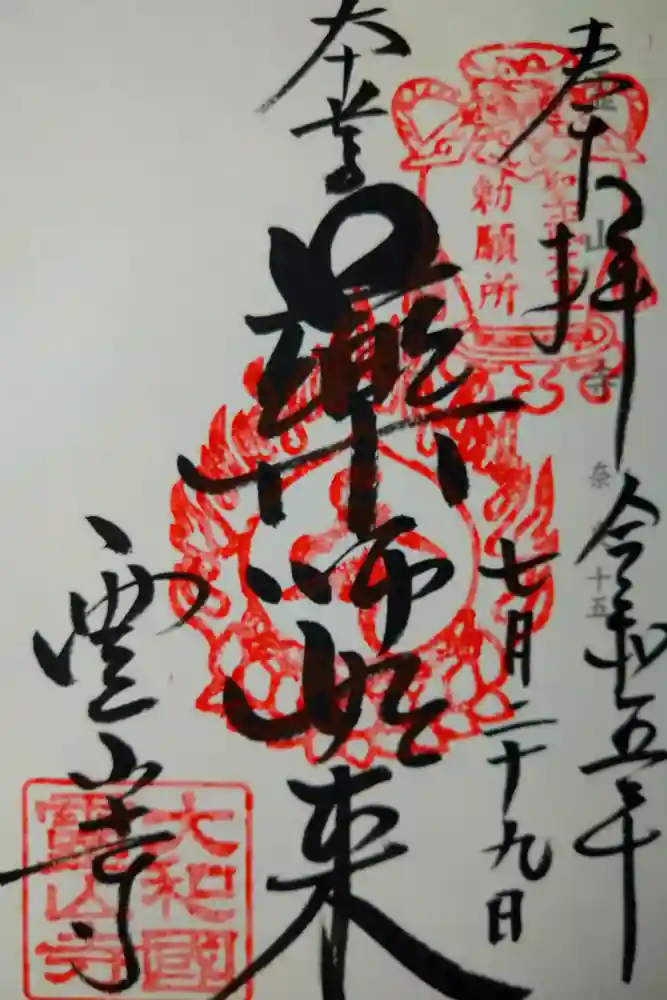 奉拝
令和五年
七月二十九日
本尊
薬師如来
霊山寺
勅願所
大和國
霊山寺